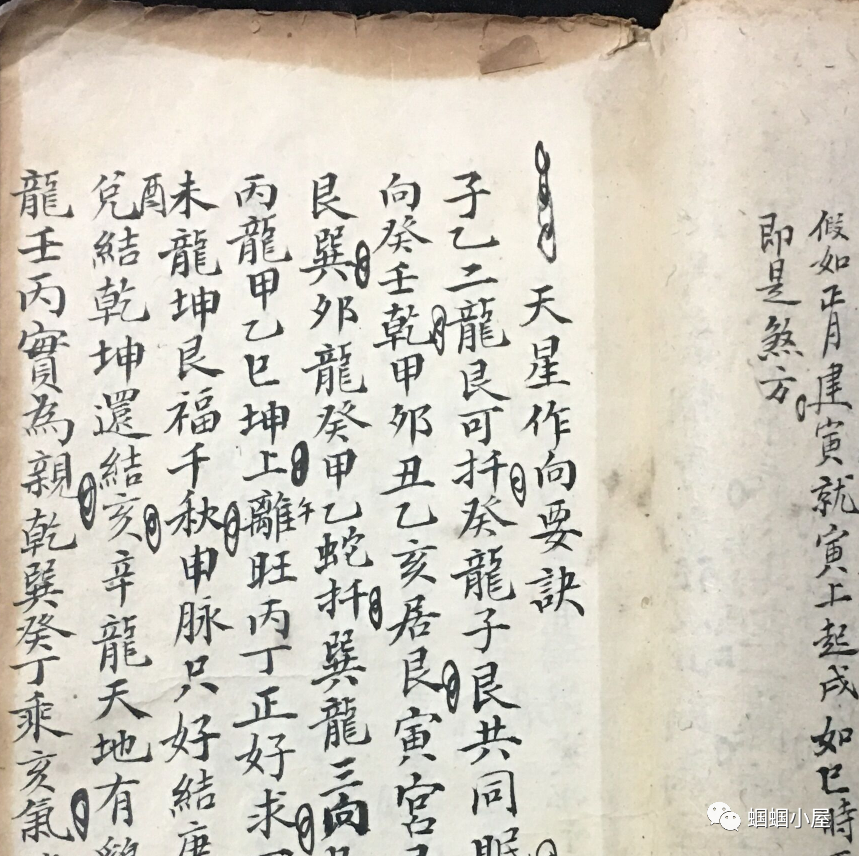 假如正月建寅就寅上起戌如巳時
即是煞方
天星作向要訣
子乙二龍艮可扦癸龍子艮共同眠
向癸壬乾甲卯丑乙亥居艮寅宮
艮巽卯龍癸甲乙蛇扦巽龍三向
丙龍甲乙巳坤上離午旺丙丁正好求
未龍坤艮福千秋申脉只好結庚
兌酉結乾坤還結亥辛龍天地有
龍壬丙實為親乾巽癸丁乘亥氣
蝈蝈小屋